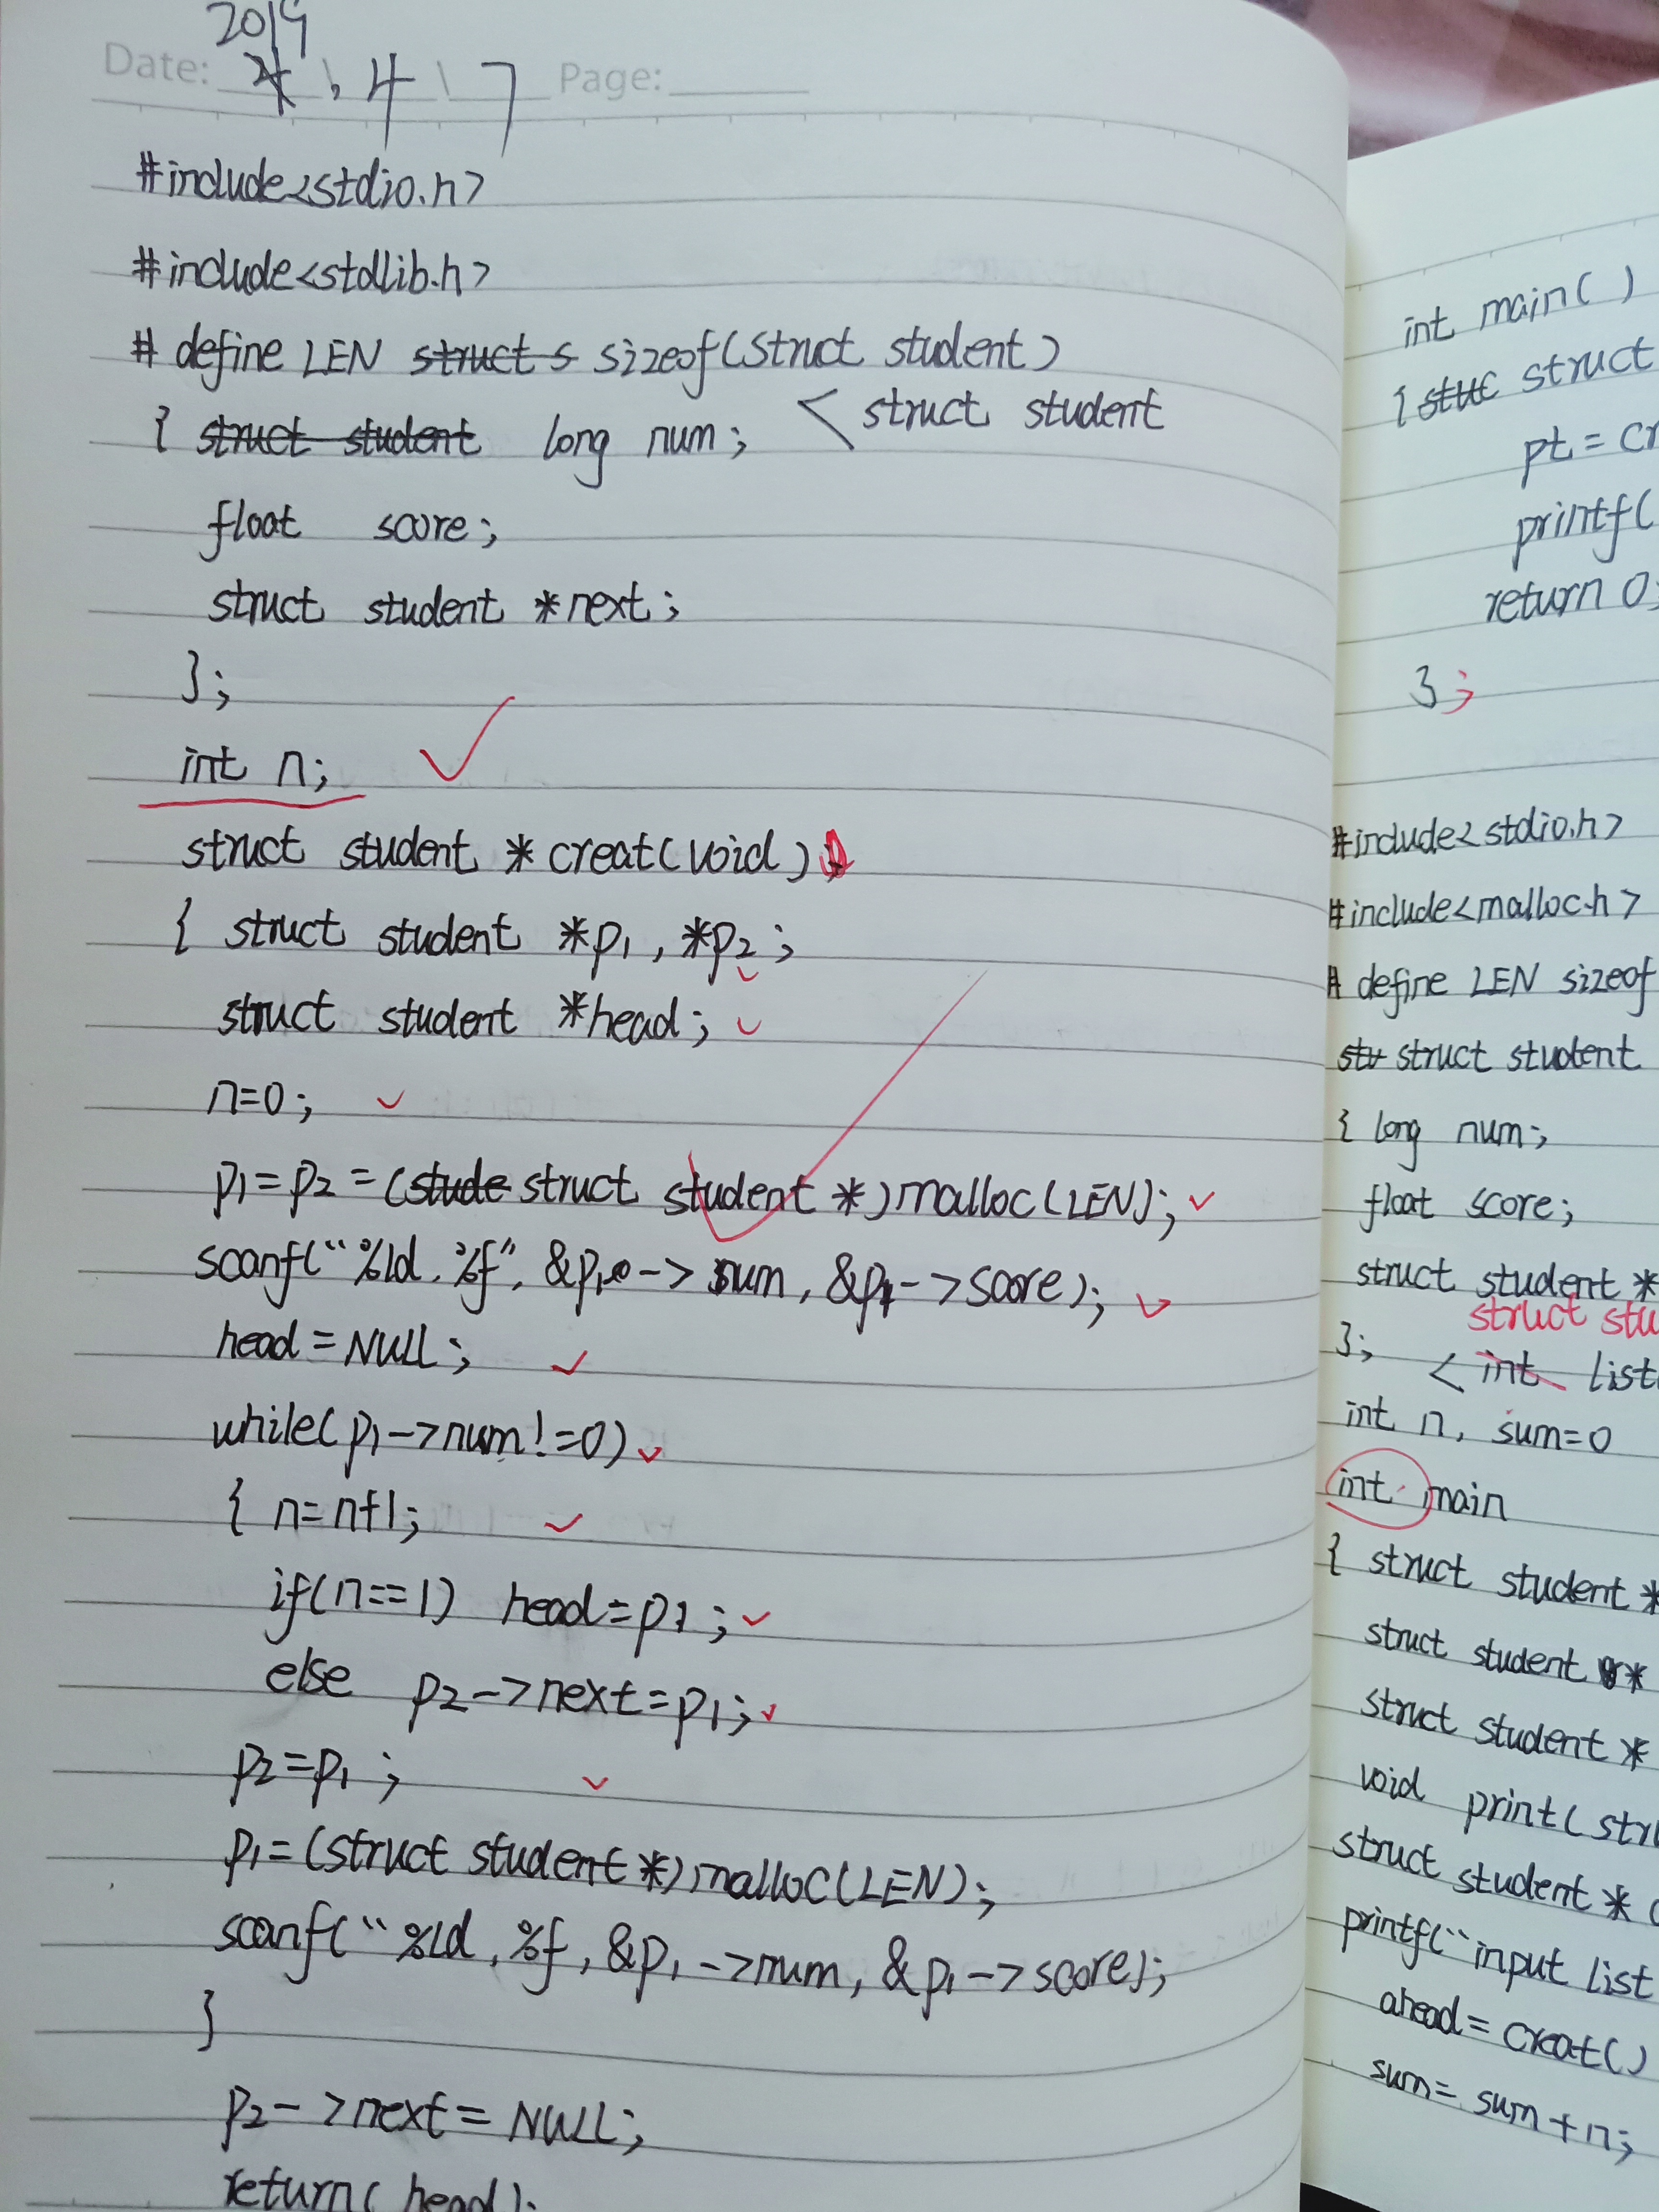 2019
Date: 4 \ 7 Page:
#include<stdio.h>
#include<stdlib.h>
# define LEN struct s sizeof(struct student)
{ struct student long num; < struct student
float score;
struct student *next;
};
int n;
struct student *creat(void)
{ struct student *p1, *p2;
struct student *head;
n=0;
p1=p2=(stude struct student *)malloc(LEN);
scanf("%ld,%f", &p1->num, &p1->score);
head=NULL;
while(p1->num!=0)
{ n=n+1;
if(n==1) head=p1;
else p2->next=p1;
p2=p1;
p1=(struct student*)malloc(LEN);
scanf("%ld,%f, &p1->num, &p1->score);
}
p2->next=NULL;
return(head);
int main()
{stuc struct
pt=cr
printf(
return 0;
};
#include<stdio.h>
#include<malloc.h>
# define LEN sizeof
stu struct student
{ long num;
float score;
struct student *
struct stu
}; < int list
int n, sum=0
int main
{ struct student *
struct student *
struct student *
void print(stru
struct student *
printf("input list
ahead=creat()
sum=sum+n;